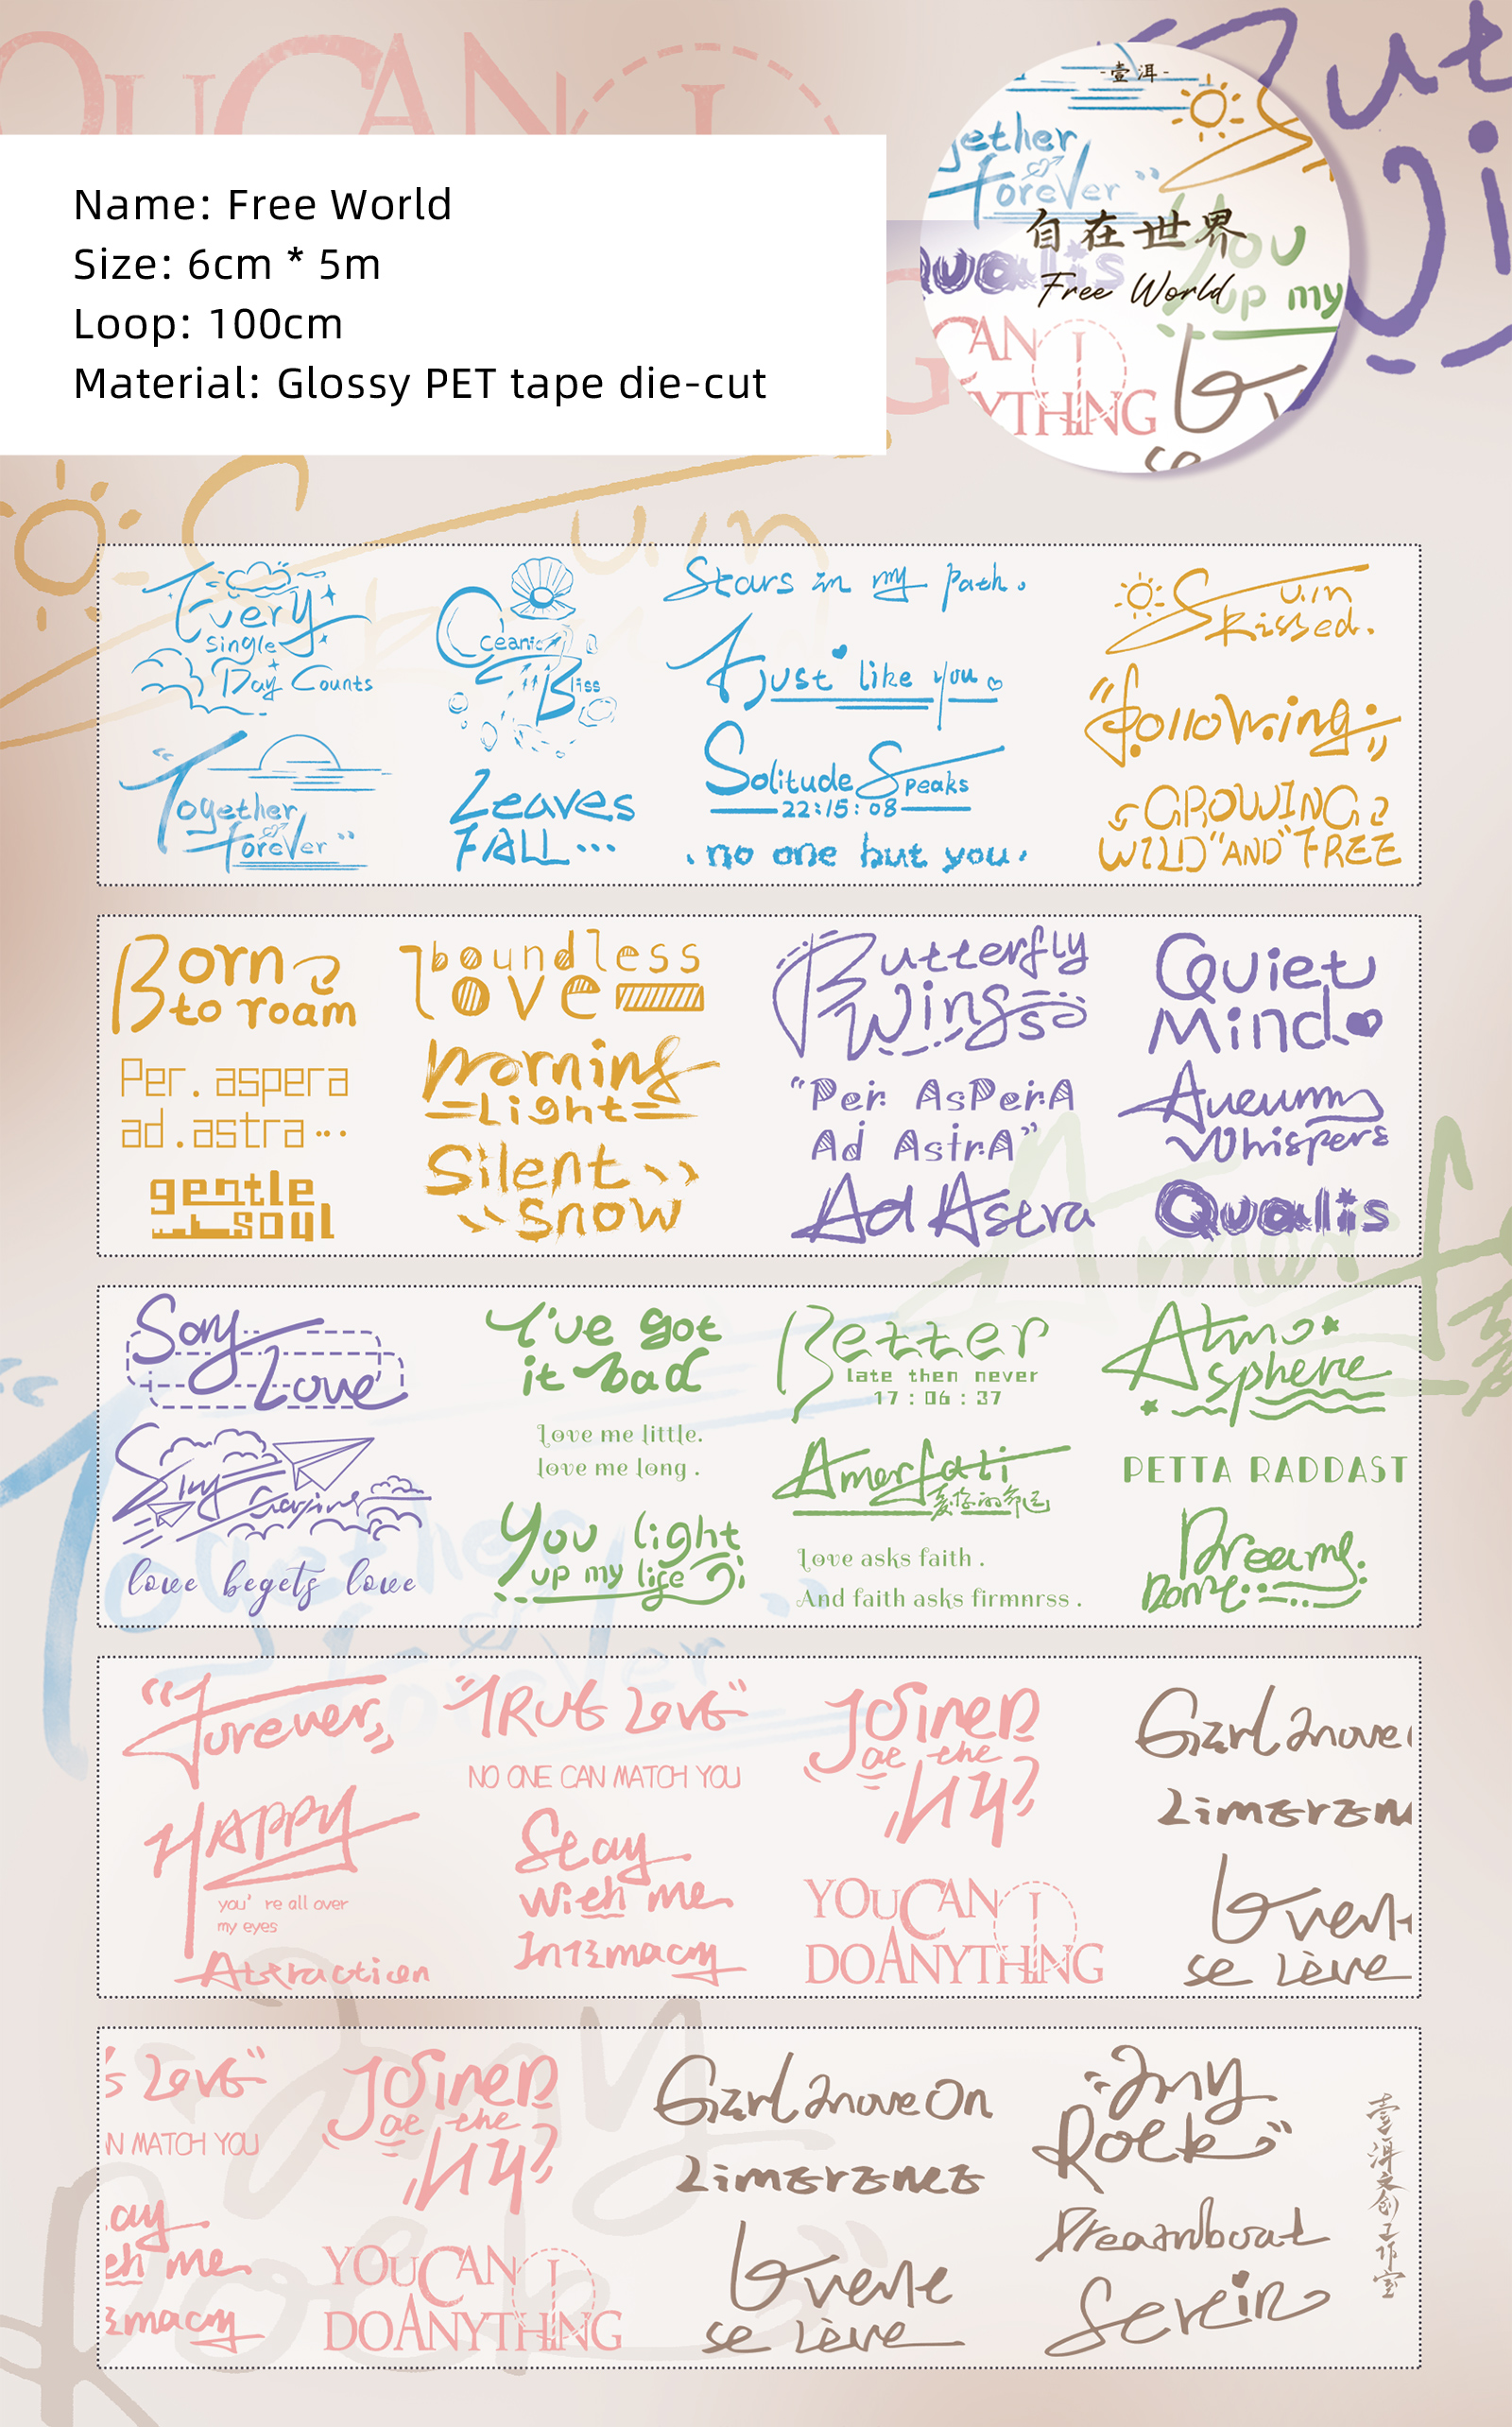 Name: Free World
Size: 6cm * 5m
Loop: 100cm
Material: Glossy PET tape die-cut
-壹洱-
自在世界
Free World
Every
Single
Day Counts
Together
Forever
Oceanic
Bliss
Leaves
FALL...
Stars in my path.
just like you
Solitude Speaks
22:15:08
.no one but you.
Sun
kissed.
"following"
GROWING
WILD "AND" FREE
Born
to roam
Per.aspera
ad.astra...
gentle
soul
boundless
love
Morning
Light
Silent
snow
Butterfly
Wings
"Per AsPerA
Ad AstrA"
Ad Astra
Quiet
Mind
Whispers
Qualis
Say
Love
love begets love
I've got
it bad
Love me little.
love me long .
You light
up my life
Better
late then never
17:06:37
Amorfati
Love asks faith .
And faith asks firmnrss .
Atmo
sphere
PETTA RADDAST
"Forever"
HAPPY
you' re all over
my eyes
Attraction
"TRUE LOVE"
NO ONE CAN MATCH YOU
Stay
with me
Intimacy
Joined
the
YOU CAN
DO ANYTHING
Girl move
Limeren
se lève
LOVE"
N MATCH YOU
ay
th me
macy
Joined
the
YOU CAN
DO ANYTHING
Girl move On
Limerence
se lève
my
Rock"
Dreamboat
Serein
壹洱文创工作室